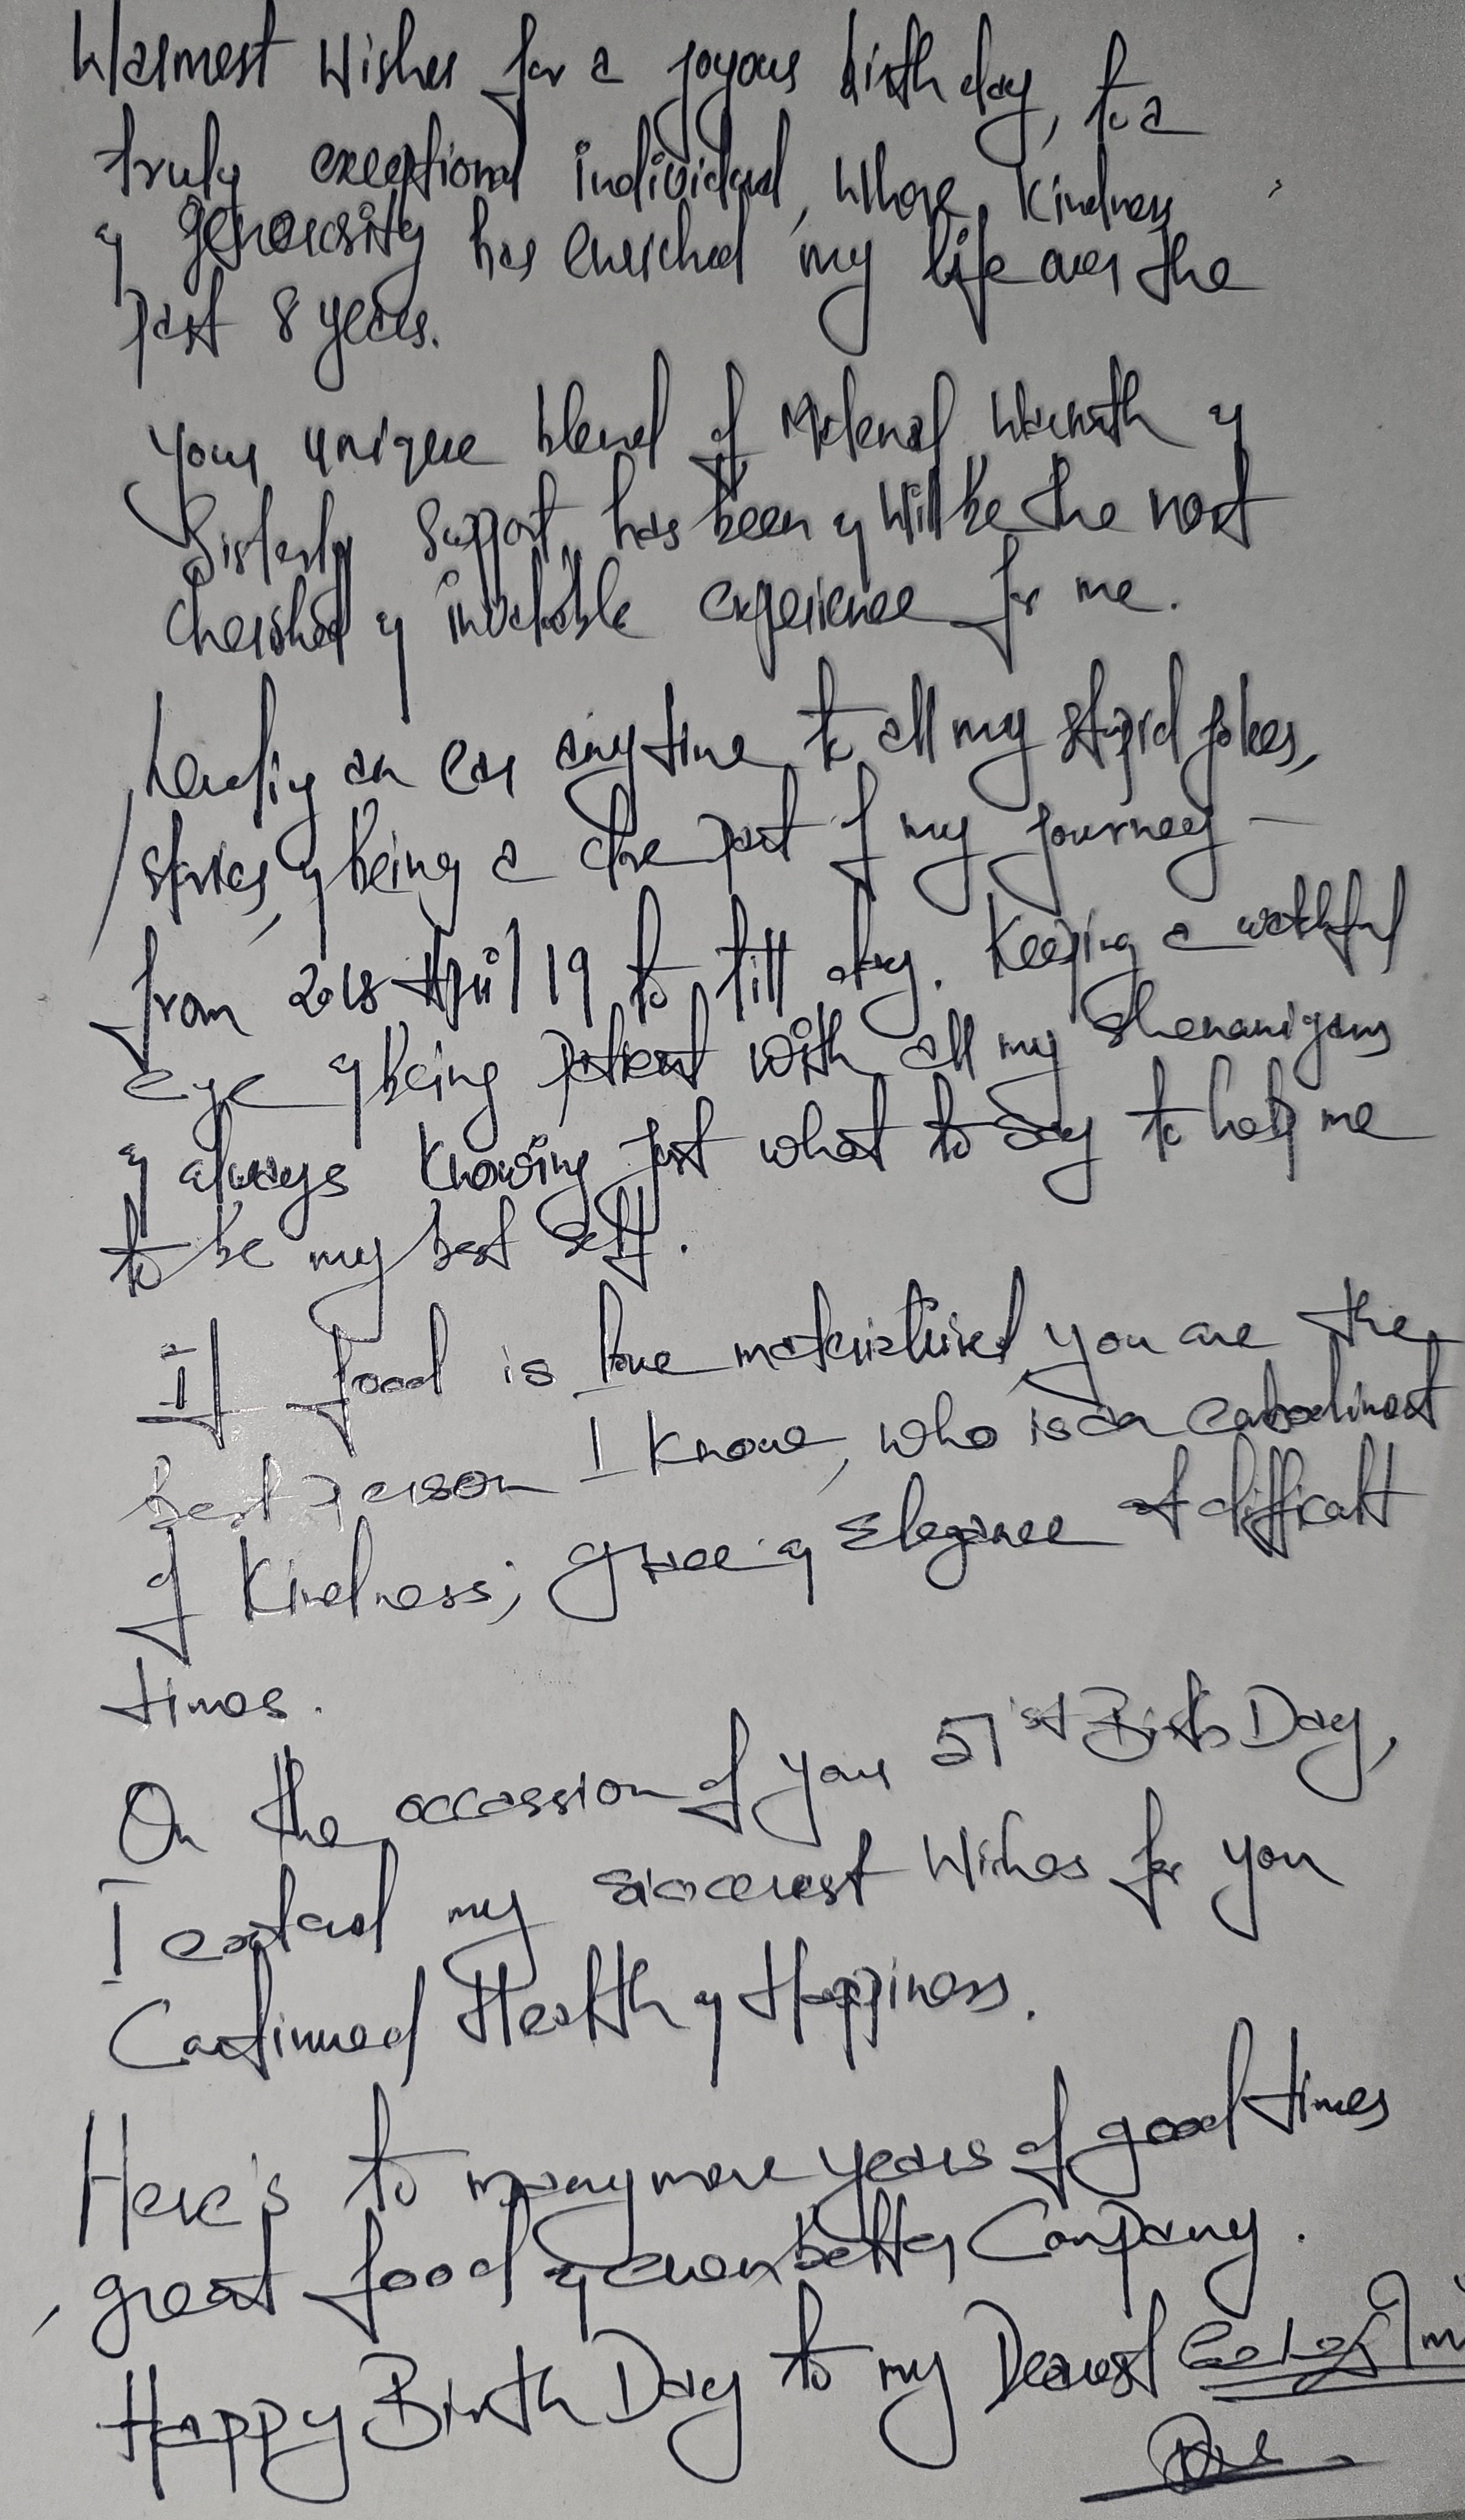 Warmest Wishes for a joyous birth day, to a
truly exceptional individual, whose kindness
& generosity has enriched my life over the
past 8 years.
Your unique blend of Maternal Warmth &
Sisterly Support has been & will be the most
cherished & invaluable experience for me.
Lending an ear anytime to all my stupid jokes,
stories, & being a close part of my journey —
from 2018 April 19 to till day. Keeping a watchful
eye & being patient with all my shenanigans
& always knowing just what to say to help me
to be my best self.
If food is love materialised you are the
best person I know, who is an embodiment
of Kindness, grace & Elegance at difficult
times.
On the occassion of your 51st Birth Day,
I extend my sincerest Wishes for you
Continued Health & Happiness.
Here's to many more years of good times
, great food & even better Company.
Happy Birth Day to my Dearest